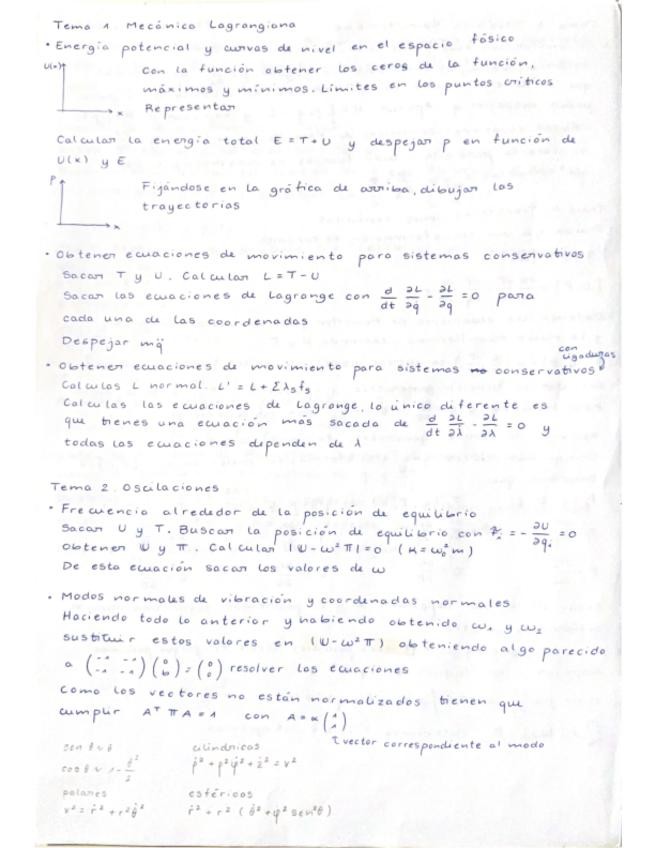 Tema 1. Mecánica Lagrangiana
• Energía potencial y curvas de nivel en el espacio fásico
U(x)
x
Con la función obtener los ceros de la función,
máximos y mínimos. Límites en los puntos críticos
Representar
Calcular la energía total E = T + U y despejar p en función de
U(x) y E
P
x
Fijándose en la gráfica de arriba, dibujar las
trayectorias
• Obtener ecuaciones de movimiento para sistemas conservativos
Sacar T y U. Calcular L = T - U
Sacar las ecuaciones de Lagrange con d/dt ∂L/∂q̇ - ∂L/∂q = 0 para
cada una de las coordenadas
Despejar mq̈
• Obtener ecuaciones de movimiento para sistemas no conservativos con ligaduras
Calculas L normal. L' = L + Σλsfs
Calculas las ecuaciones de Lagrange, lo único diferente es
que tienes una ecuación más sacada de d/dt ∂L/∂λ̇ - ∂L/∂λ = 0 y
todas las ecuaciones dependen de λ
Tema 2. Oscilaciones
• Frecuencia alrededor de la posición de equilibrio
Sacar U y T. Buscar la posición de equilibrio con = - ∂U/∂qi = 0
Obtener 𝕌 y 𝕋. Calcular |𝕌 - ω²𝕋| = 0 (K = ω₀²m)
De esta ecuación sacar los valores de ω
• Modos normales de vibración y coordenadas normales
Haciendo todo lo anterior y habiendo obtenido ω₁ y ω₂
sustituir estos valores en |𝕌 - ω²𝕋| obteniendo algo parecido
a (-1 -1 / -1 -1)(a / b) = (0 / 0) resolver las ecuaciones
Como los vectores no están normalizados tienen que
cumplir Aᵀ𝕋A = 1 con A = α(1 / 1)
vector correspondiente al modo
sen θ ~ θ
cos θ ~ 1 - θ²/2
polares
v² = ṙ² + r²θ̇²
cilíndricos
ρ̇² + ρ²φ̇² + ż² = v²
esféricos
ṙ² + r²(θ̇² + φ̇² sen²θ)